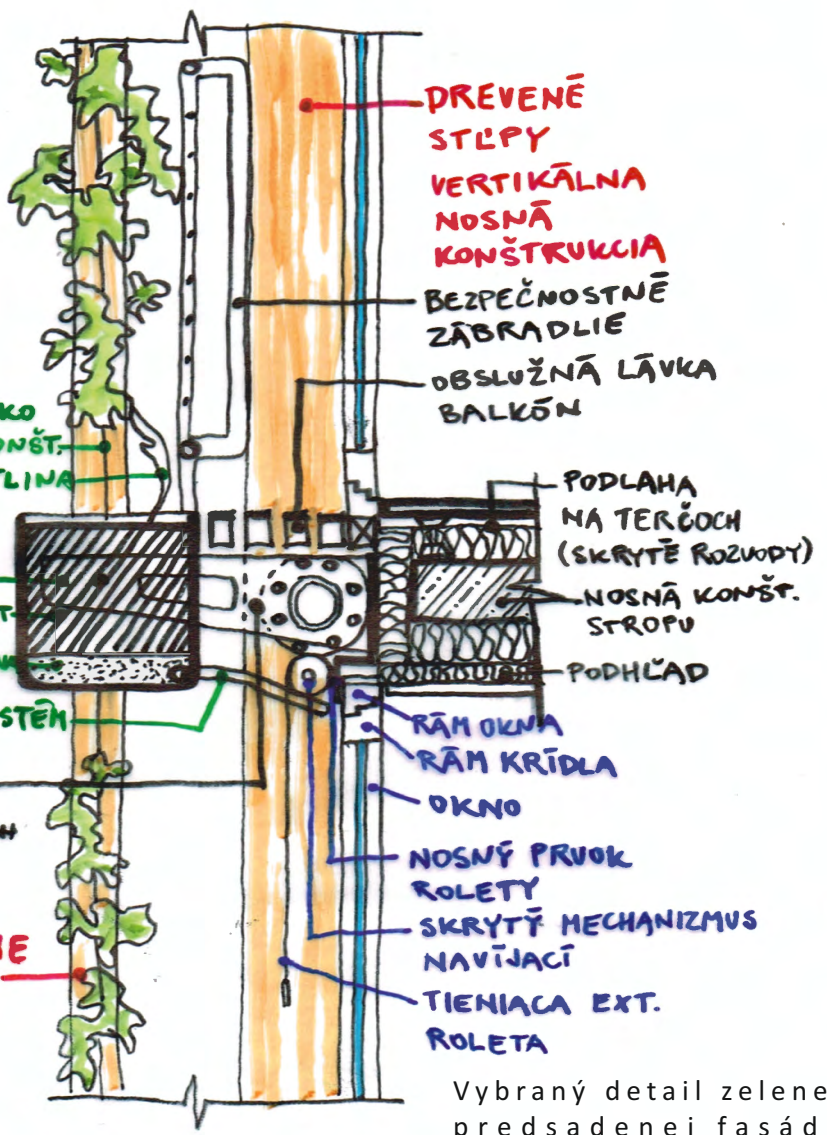 DREVENÉ
STĹPY
VERTIKÁLNA
NOSNÁ
KONŠTRUKCIA
BEZPEČNOSTNÉ
ZÁBRADLIE
OBSLUŽNÁ LÁVKA
BALKÓN
PODLAHA
NA TERČOCH
(SKRYTÉ ROZVODY)
NOSNÁ KONŠT.
STROPU
PODHĽAD
RÁM OKNA
RÁM KRÍDLA
OKNO
NOSNÝ PRVOK
ROLETY
SKRYTÝ MECHANIZMUS
NAVÍJACÍ
TIENIACA EXT.
ROLETA
Vybraný detail zelene
predsadenej fasád